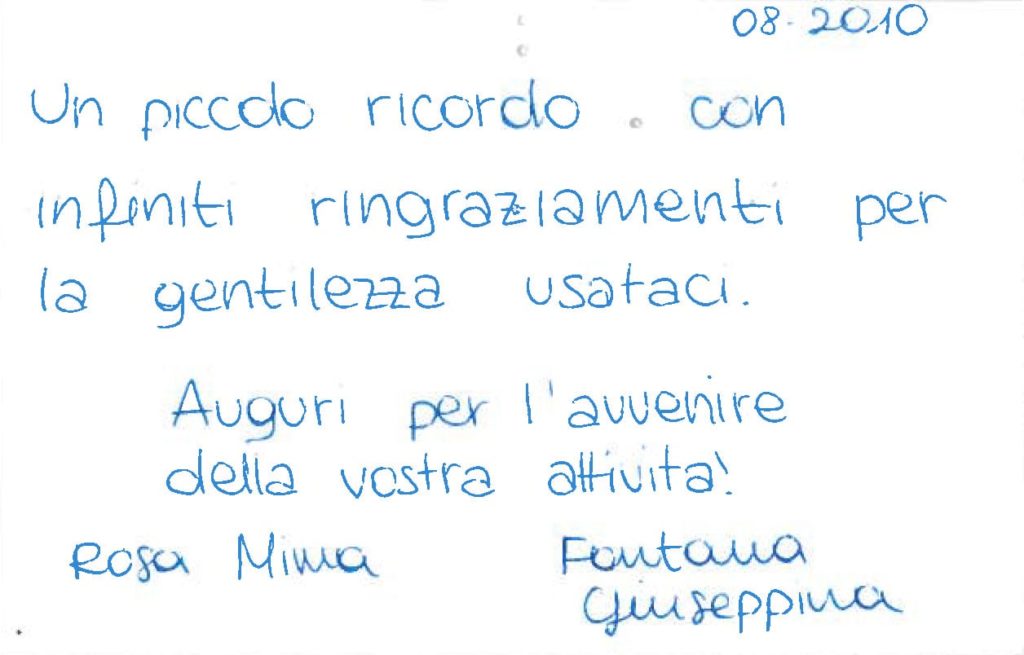 08-2010
Un piccolo ricordo . con
infiniti ringraziamenti per
la gentilezza usataci.
Auguri per l'avvenire
della vostra attività!
Rosa Mima Fontana
Giuseppina